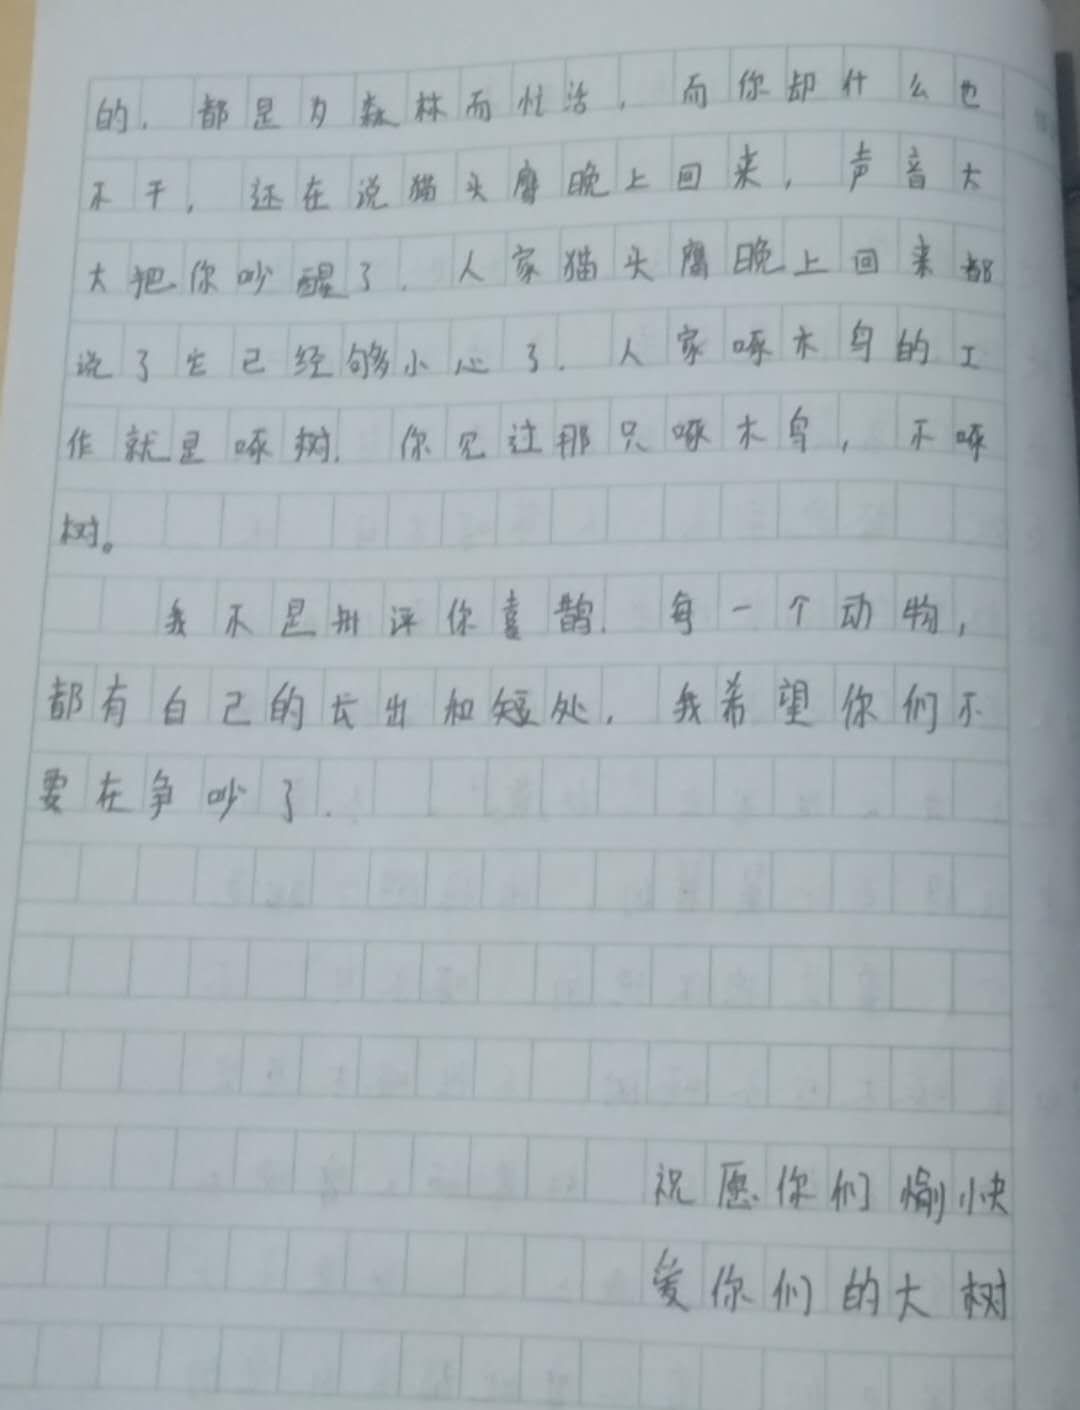 的，都是为森林而忙活，而你却什么也
不干，还在说猫头鹰晚上回来，声音大
大把你吵醒了．人家猫头鹰晚上回来都
说了它已经够小心了．人家啄木鸟的工
作就是啄树．你见过那只啄木鸟，不啄
树。
我不是批评你喜鹊．每一个动物，
都有自己的长出和短处，我希望你们不
要在争吵了．
祝愿你们愉快
爱你们的大树